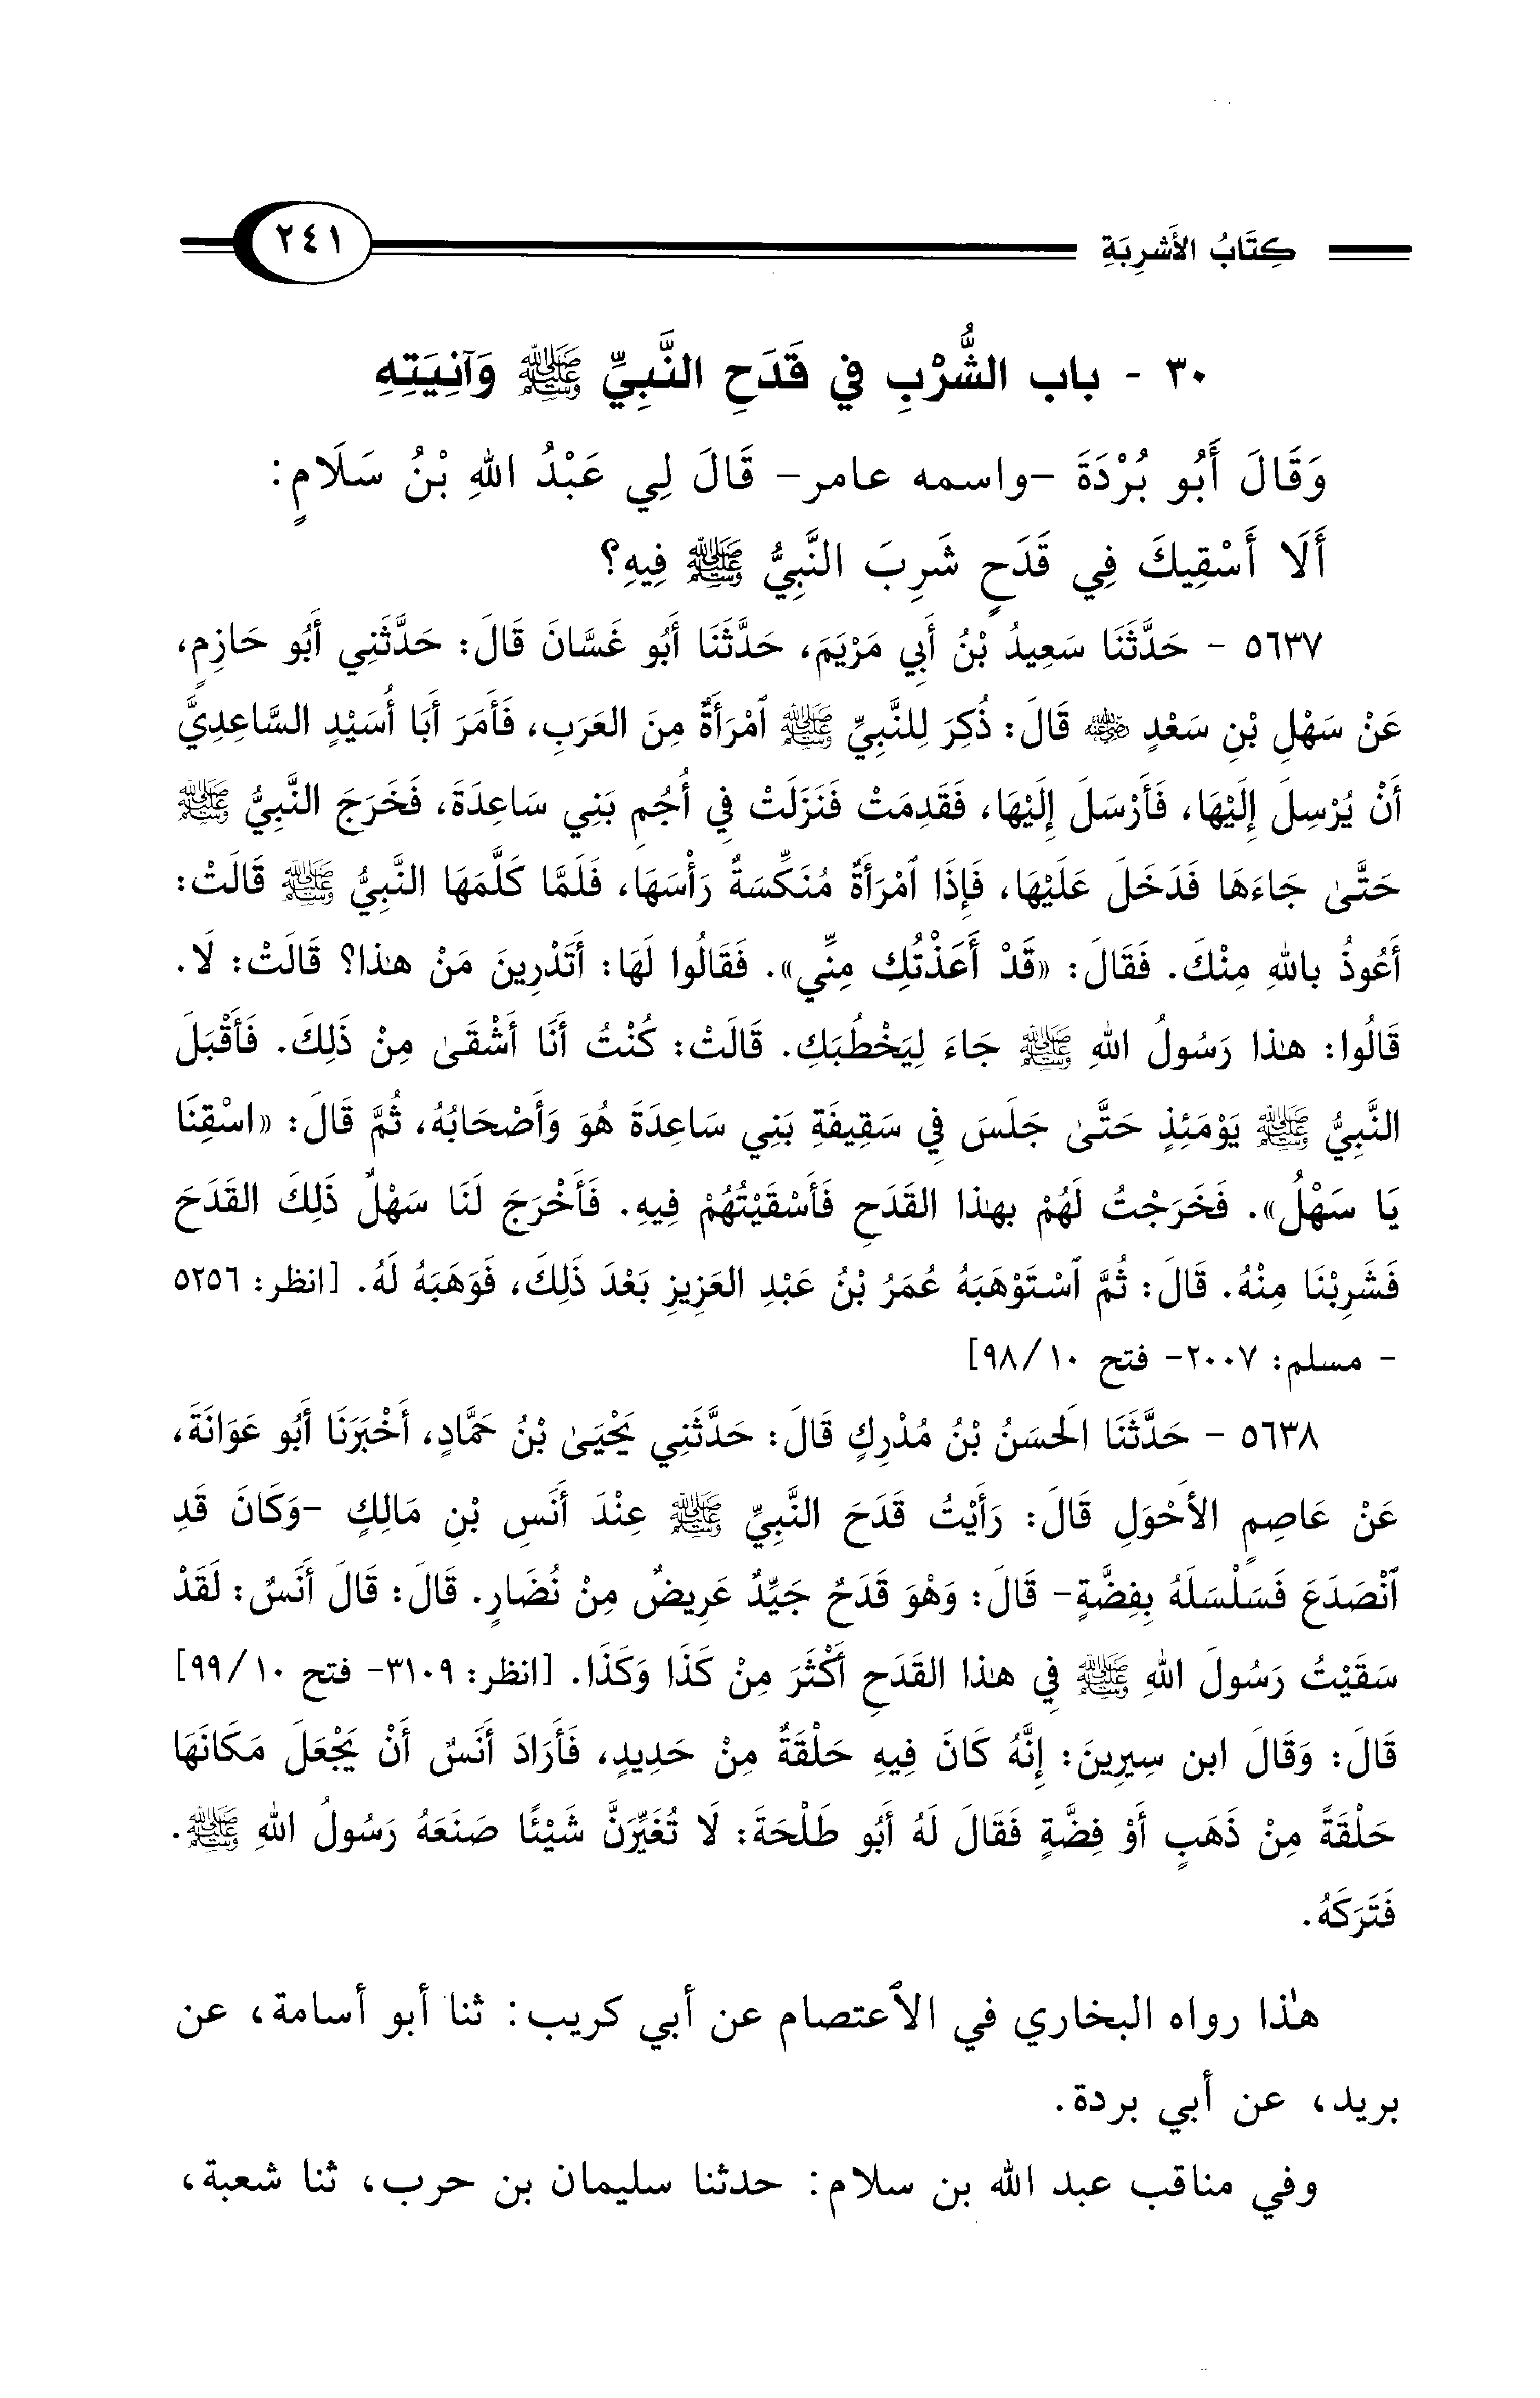 كِتَابُ الأَشْرِبَةِ ٢٤١
٣٠ - باب الشُّرْبِ في قَدَحِ النَّبِيِّ ﷺ وَآنِيَتِهِ
وَقَالَ أَبُو بُرْدَةَ -واسمه عامر- قَالَ لِي عَبْدُ اللهِ بْنُ سَلَامٍ:
أَلَا أَسْقِيكَ فِي قَدَحٍ شَرِبَ النَّبِيُّ ﷺ فِيهِ؟
٥٦٣٧ - حَدَّثَنَا سَعِيدُ بْنُ أَبِي مَرْيَمَ، حَدَّثَنَا أَبُو غَسَّانَ قَالَ: حَدَّثَنِي أَبُو حَازِمٍ،
عَنْ سَهْلِ بْنِ سَعْدٍ رضي الله عنه قَالَ: ذُكِرَ لِلنَّبِيِّ ﷺ ٱمْرَأَةٌ مِنَ العَرَبِ، فَأَمَرَ أَبَا أُسَيْدٍ السَّاعِدِيَّ
أَنْ يُرْسِلَ إِلَيْهَا، فَأَرْسَلَ إِلَيْهَا، فَقَدِمَتْ فَنَزَلَتْ فِي أُجُمِ بَنِي سَاعِدَةَ، فَخَرَجَ النَّبِيُّ ﷺ
حَتَّىٰ جَاءَهَا فَدَخَلَ عَلَيْهَا، فَإِذَا ٱمْرَأَةٌ مُنَكِّسَةٌ رَأْسَهَا، فَلَمَّا كَلَّمَهَا النَّبِيُّ ﷺ قَالَتْ:
أَعُوذُ باللهِ مِنْكَ. فَقَالَ: «قَدْ أَعَذْتُكِ مِنِّي». فَقَالُوا لَهَا: أَتَدْرِينَ مَنْ هٰذا؟ قَالَتْ: لَا.
قَالُوا: هٰذا رَسُولُ اللهِ ﷺ جَاءَ لِيَخْطُبَكِ. قَالَتْ: كُنْتُ أَنَا أَشْقَىٰ مِنْ ذَلِكَ. فَأَقْبَلَ
النَّبِيُّ ﷺ يَوْمَئِذٍ حَتَّىٰ جَلَسَ فِي سَقِيفَةِ بَنِي سَاعِدَةَ هُوَ وَأَصْحَابُهُ، ثُمَّ قَالَ: «اسْقِنَا
يَا سَهْلُ». فَخَرَجْتُ لَهُمْ بهٰذا القَدَحِ فَأَسْقَيْتُهُمْ فِيهِ. فَأَخْرَجَ لَنَا سَهْلٌ ذَلِكَ القَدَحَ
فَشَرِبْنَا مِنْهُ. قَالَ: ثُمَّ ٱسْتَوْهَبَهُ عُمَرُ بْنُ عَبْدِ العَزِيزِ بَعْدَ ذَلِكَ، فَوَهَبَهُ لَهُ. [انظر: ٥٢٥٦
- مسلم: ٢٠٠٧- فتح ١٠/ ٩٨]
٥٦٣٨ - حَدَّثَنَا الَحسَنُ بْنُ مُدْرِكٍ قَالَ: حَدَّثَنِي يَحْيَىٰ بْنُ حَمَّادٍ، أَخْبَرَنَا أَبُو عَوَانَةَ،
عَنْ عَاصِمٍ الأَحْوَلِ قَالَ: رَأَيْتُ قَدَحَ النَّبِيِّ ﷺ عِنْدَ أَنَسِ بْنِ مَالِكٍ -وَكَانَ قَدِ
ٱنْصَدَعَ فَسَلْسَلَهُ بِفِضَّةٍ- قَالَ: وَهْوَ قَدَحٌ جَيِّدٌ عَرِيضٌ مِنْ نُضَارٍ. قَالَ: قَالَ أَنَسٌ: لَقَدْ
سَقَيْتُ رَسُولَ اللهِ ﷺ فِي هٰذا القَدَحِ أَكْثَرَ مِنْ كَذَا وَكَذَا. [انظر: ٣١٠٩- فتح ١٠/ ٩٩]
قَالَ: وَقَالَ ابن سِيرِينَ: إِنَّهُ كَانَ فِيهِ حَلْقَةٌ مِنْ حَدِيدٍ، فَأَرَادَ أَنَسٌ أَنْ يَجْعَلَ مَكَانَهَا
حَلْقَةً مِنْ ذَهَبٍ أَوْ فِضَّةٍ فَقَالَ لَهُ أَبُو طَلْحَةَ: لَا تُغَيِّرَنَّ شَيْئًا صَنَعَهُ رَسُولُ اللهِ ﷺ.
فَتَرَكَهُ.
هٰذا رواه البخاري في الاعتصام عن أبي كريب: ثنا أبو أسامة، عن
بريد، عن أبي بردة.
وفي مناقب عبد الله بن سلام: حدثنا سليمان بن حرب، ثنا شعبة،